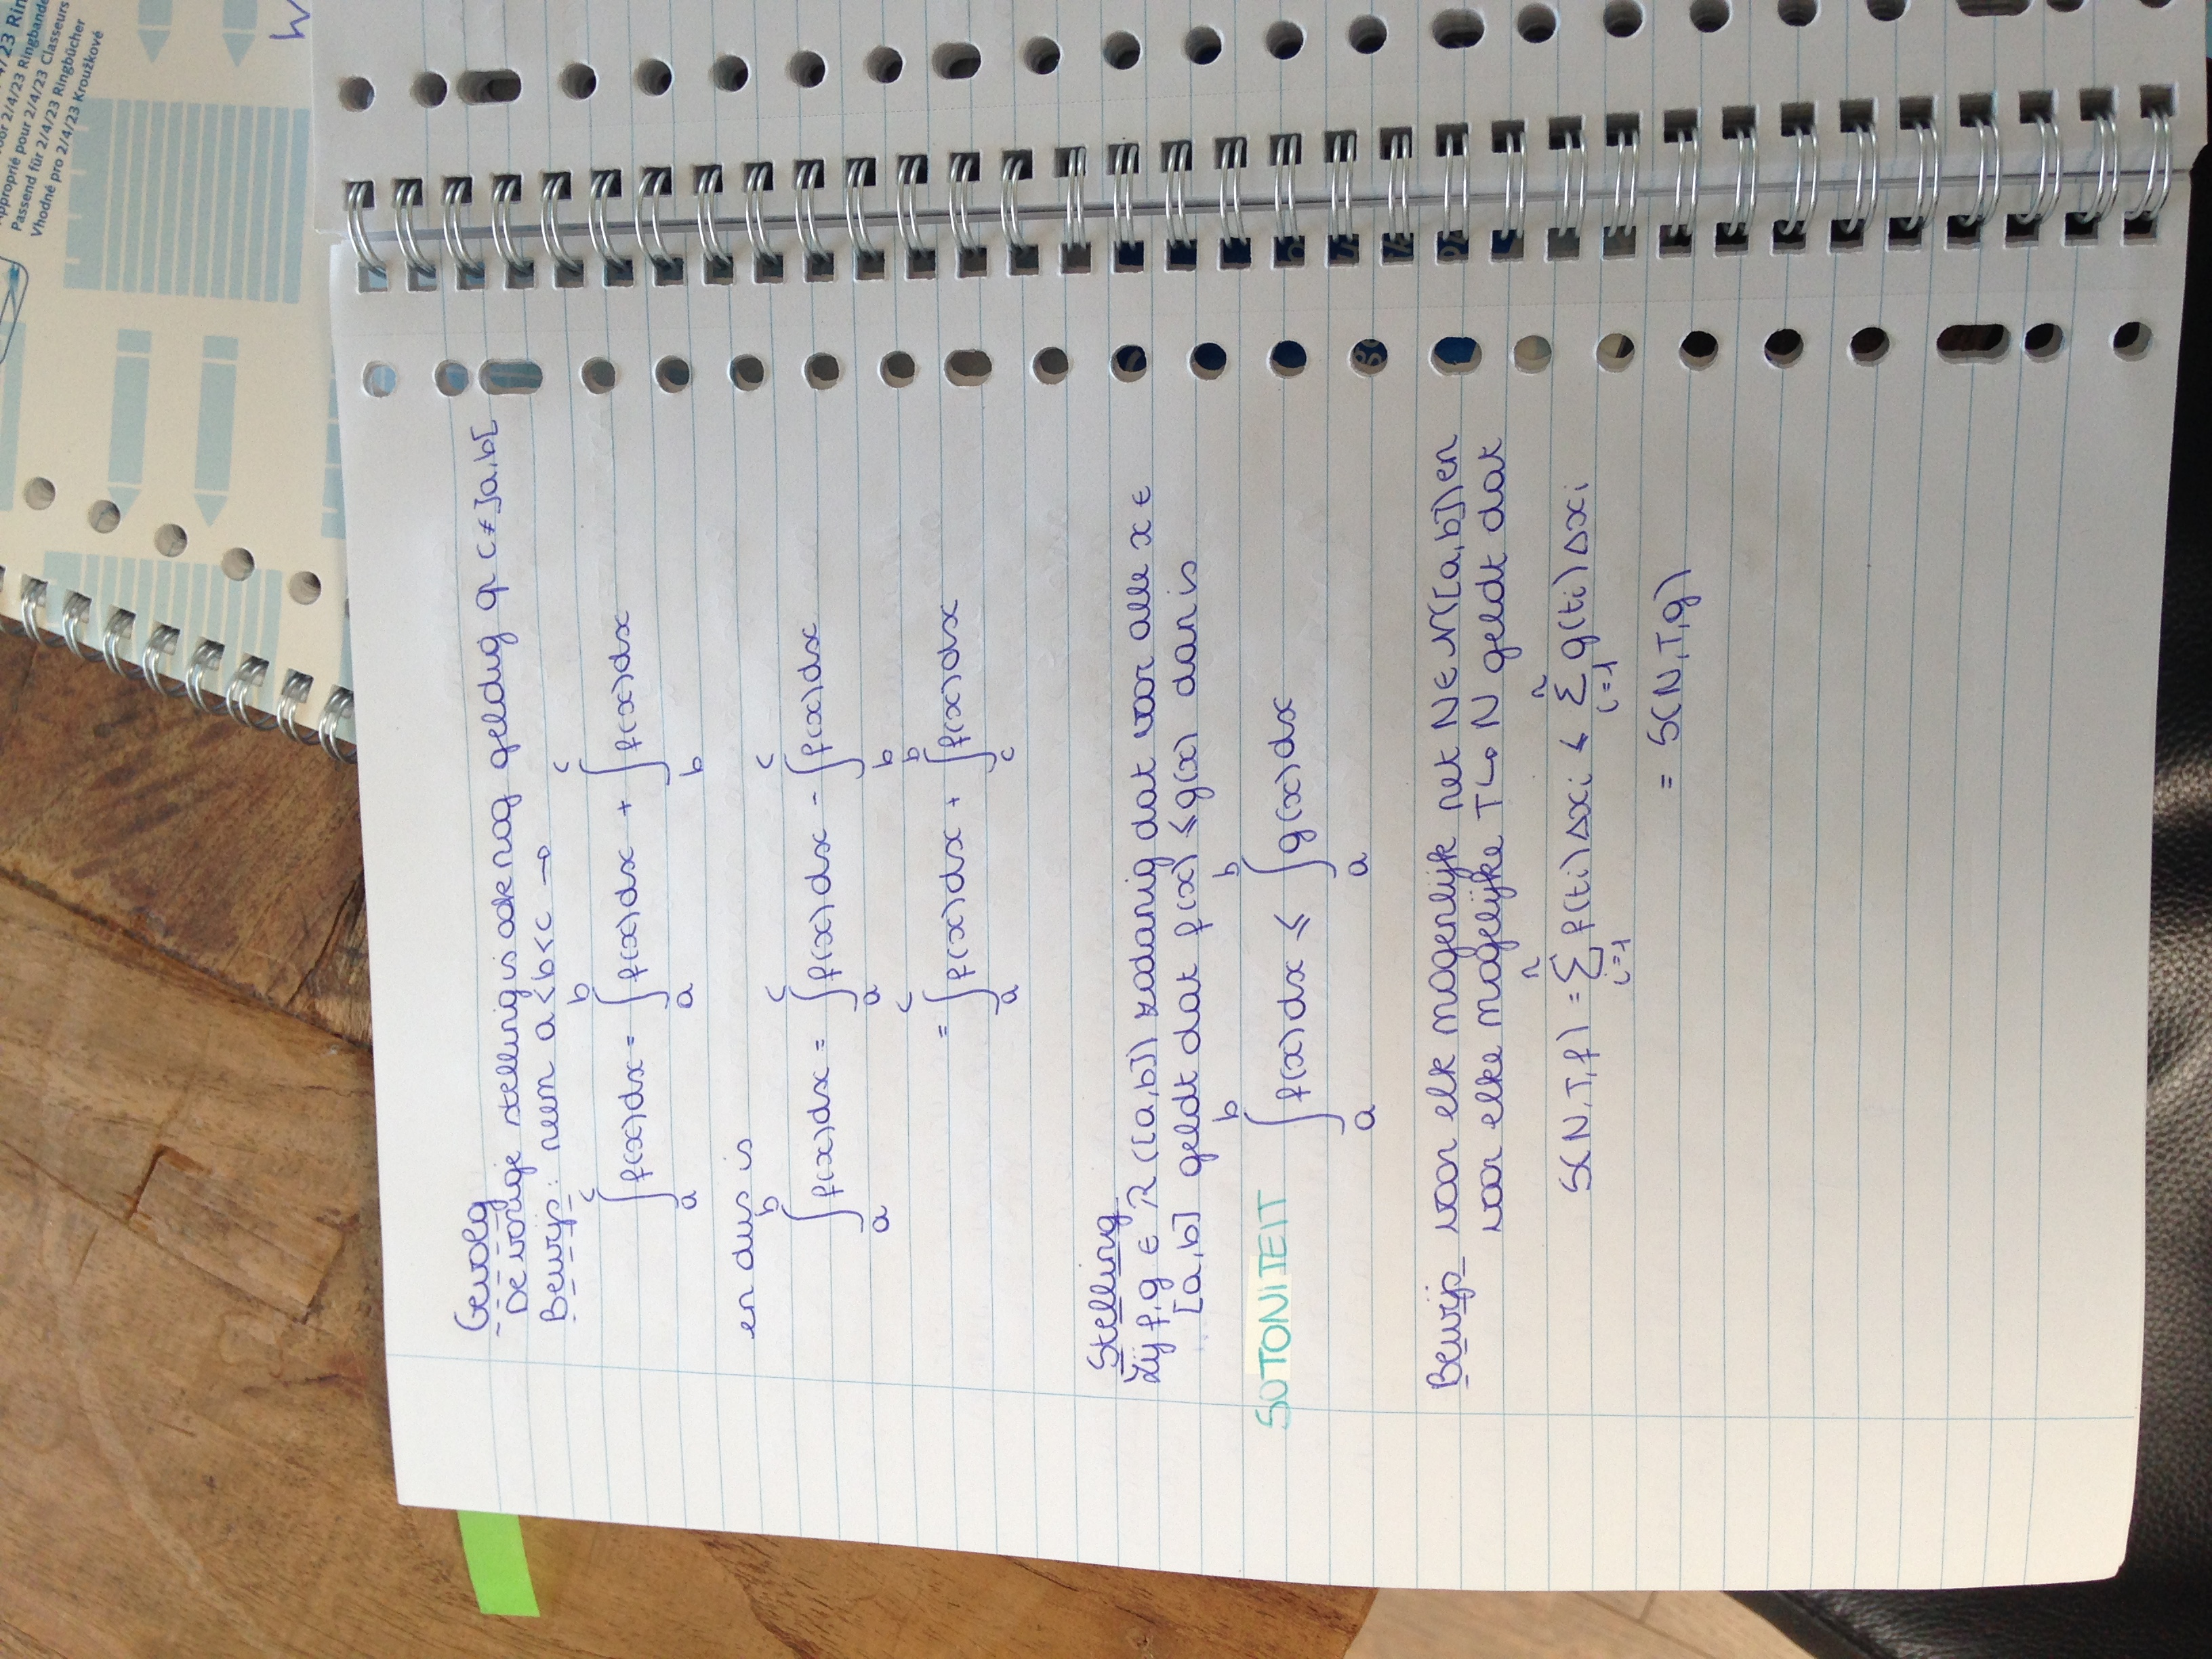 4/23 Rin
oor 2/4/23 Ringbande
Approprié pour 2/4/23 Classeurs
Passend für 2/4/23 Ringbücher
Vhodné pro 2/4/23 Kroužkové
W
Gevolg
De vorige stelling is ook nog geldig op c ≠ ]a,b[
Bewijs: neem a < b < c →
∫_a^c f(x)dx = ∫_a^b f(x)dx + ∫_b^c f(x)dx
en dus is
∫_a^b f(x)dx = ∫_a^c f(x)dx - ∫_b^c f(x)dx
= ∫_a^c f(x)dx + ∫_c^b f(x)dx
Stelling
Zij f,g ∈ R([a,b]) zodanig dat voor alle x ∈
[a,b] geldt dat f(x) ≤ g(x) dan is
SOTONITEIT ∫_a^b f(x)dx ≤ ∫_a^b g(x)dx
Bewijs voor elk mogenlijk net N ∈ N([a,b]) en
voor elke mogelijke T↪N geldt dat
S(N,T,f) = Σ_{i=1}^n f(ti)Δxi ≤ Σ_{i=1}^n g(ti)Δxi
= S(N,T,g)